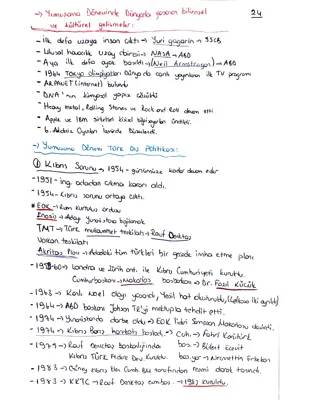 24
→ Yumuşama Döneminde Dünyada yaşanan bilimsel
ve kültürel gelişmeler:
- ilk defa uzaya insan çıktı → Yuri gagarin → SSCB
- Ulusal havacılık uzay dairesi → NASA → ABD
- Aya ilk defa ayak bastı → (Neil Armstrong) → ABD
- 1964 Tokyo olimpiyatları Dünyada canlı yayınlanan ilk TV programı
- ARPANET (internet) bulundu
- DNA'nın kimyasal yapısı çözüldü
- Heavy metal, Rolling Stones ve Rock and Roll devam etti
- Apple ve IBM şirketleri kişisel bilgisayarları üretildi.
- 6. Akdeniz Oyunları İzmirde Düzenlendi.
→ Yumuşama Dönemi Türk Dış Politikası:
① Kıbrıs Sorunu → 1954 - günümüze kadar devam eder
- 1951 - ing. adadan çıkma kararı aldı.
- 1954 - Kıbrıs sorunu ortaya çıktı.
* EOK → Rum kurtuluş ordusu
Enosis → Adayı Yunanistana bağlamak
TMT → Türk mukavemet teşkilatı → Rauf Denktaş
Volkan teşkilatı
Akritas Planı → Adadaki tüm türkleri bir gecede imha etme planı
- 1959-60 → Londra ve Zürih ant. ile Kıbrıs Cumhuriyeti kuruldu
Cumhurbaşkanı → Makarios başbakan → Dr. Fazıl Küçük
- 1963 → Kanlı Noel olayı yaşandı, Yeşil hat oluşturuldu (Lefkoşa iki ayrıldı)
- 1964 → ABD başkanı Johson TR'yi mektupla tehdit etti.
- 1974 → Yunanistanda darbe oldu → EOK lideri Simpson Makariosu devirdi.
- 1974 → Kıbrıs Barış harekatı başladı. → Cum. → Fahri Korutürk
baş. → Bülent Ecevit
- 1975 → Rauf Denktaş başkanlığında
Kıbrıs TÜRK Federe Dev. Kuruldu. baş. yar → Necmettin Erbakan
- 1983 → Güney Kıbrıs Rum Cum. BM tarafından resmi olarak tanındı.
- 1983 → KKTC → Rauf Denktaş cumbaş. → 1983 kuruldu.